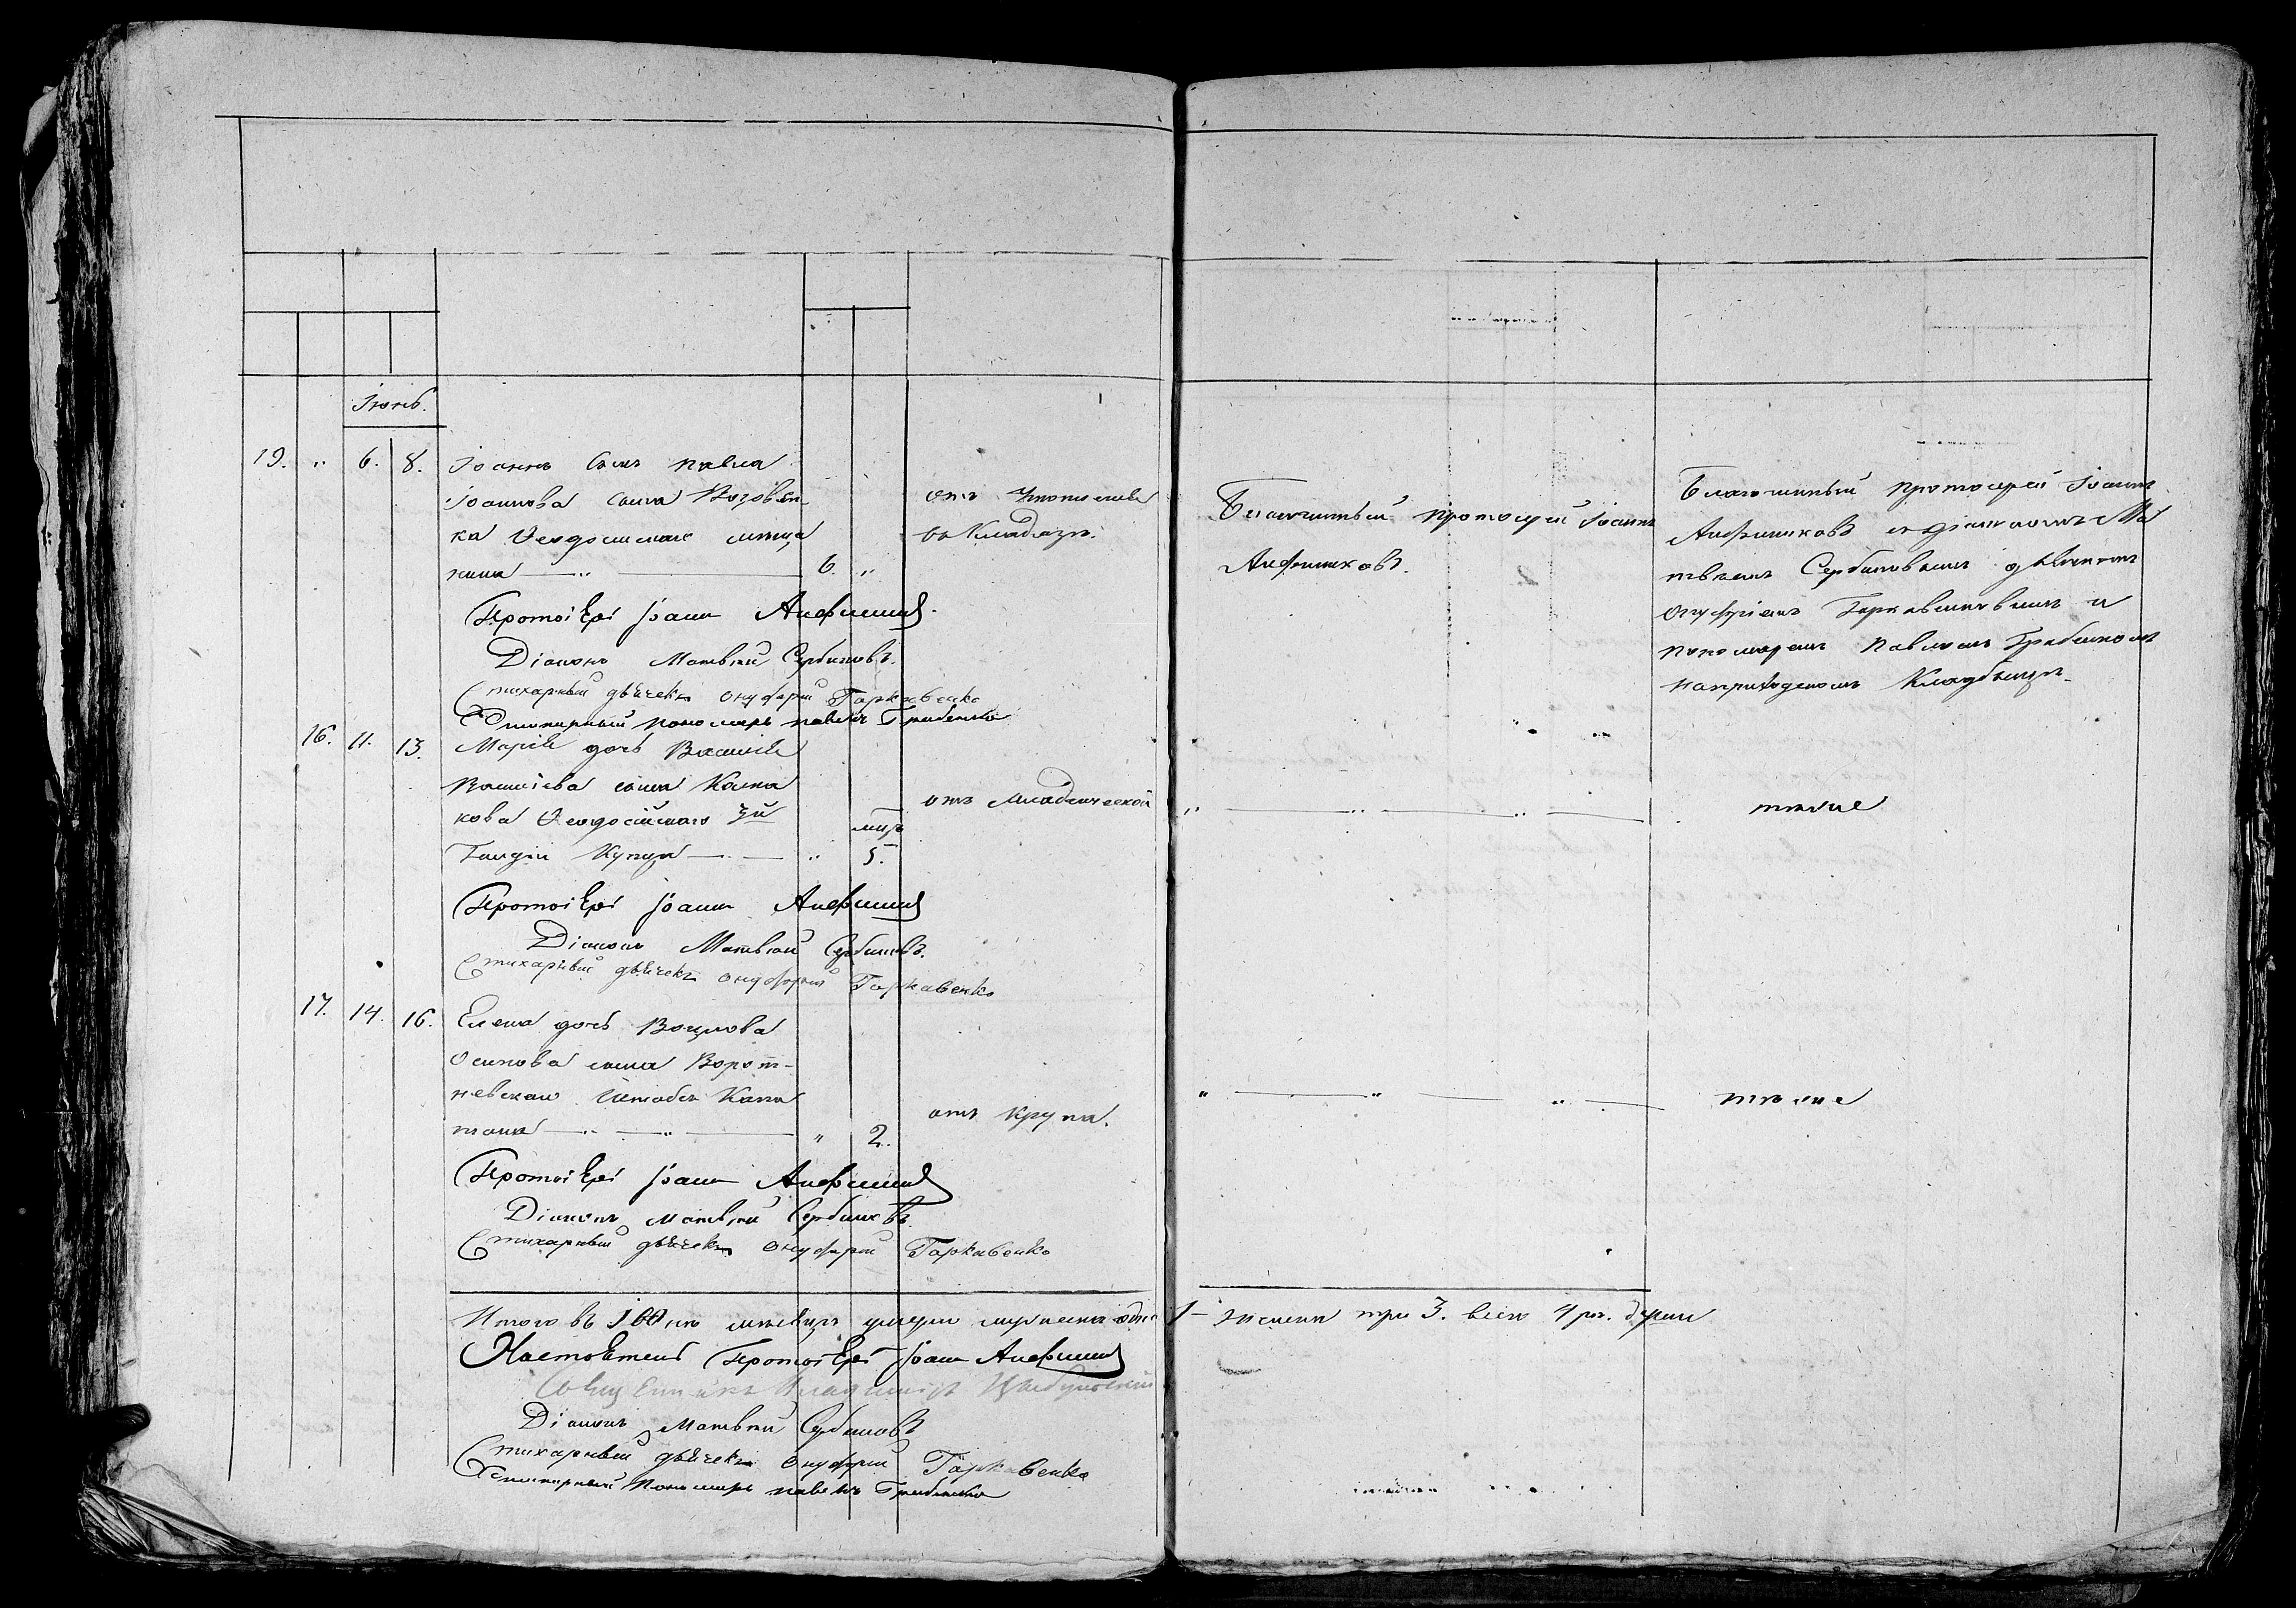 Іюнь.
19. " 6. 8. Іоаннъ сынъ Павла
Іоаннова сына
ка Ѳеодосійскаго мѣща
нина 6. "
отъ утопленія
въ Кладязѣ.
Благочинный Протоіерей Іоаннъ
Анфимиковъ.
Благочинный Протоіерей Іоаннъ
Анфимиковъ съ діакономъ Ма
твѣемъ Сербиновымъ дьячкомъ
Онуфріемъ Гаркавенковымъ и
пономаремъ Павломъ Грибенкомъ
на приходскомъ Кладбищѣ.
Протоіерей Іоаннъ
Діаконъ Матвѣй Сербиновъ.
Стихарный дьячекъ Онуфрій Гаркавенко
Стихарный пономарь Павелъ Грибенко
16. 11. 13. Марія дочь Василія
Василіева сына
кова Ѳеодосійскаго 3й
Гильдіи Купца " мцъ 5.
отъ младенческой
" тѣже
Протоіерей Іоаннъ
Діаконъ Матвѣй Сербиновъ.
Стихарный дьячекъ Онуфрій Гаркавенко
17. 14. 16. Елена дочь
Осипова сына
невскаго Штабсъ Капи
тана " 2.
отъ крупа.
" тѣже
Протоіерей Іоаннъ
Діаконъ Матвѣй Сербиновъ.
Стихарный дьячекъ Онуфрій Гаркавенко
Итого въ Іюнѣ мѣсяцѣ умерло мужеска одна 1 — женска три 3. всего 4ре души
Настоятель Протоіерей Іоаннъ
Священникъ Владиміръ
Діаконъ Матвѣй Сербиновъ
Стихарный дьячекъ Онуфрій Гаркавенко
Стихарный пономарь Павелъ Грибенко